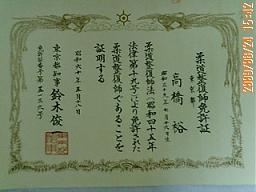 柔道整復師免許証
東京都
高橋 裕
昭和三十九年七月十六日生
柔道整復師法(昭和四十五年
法律第十九号)により免許された
柔道整復師であることを
証明する
昭和六十年五月二十八日
東京都知事 鈴木俊一
2009/06/24 15:42